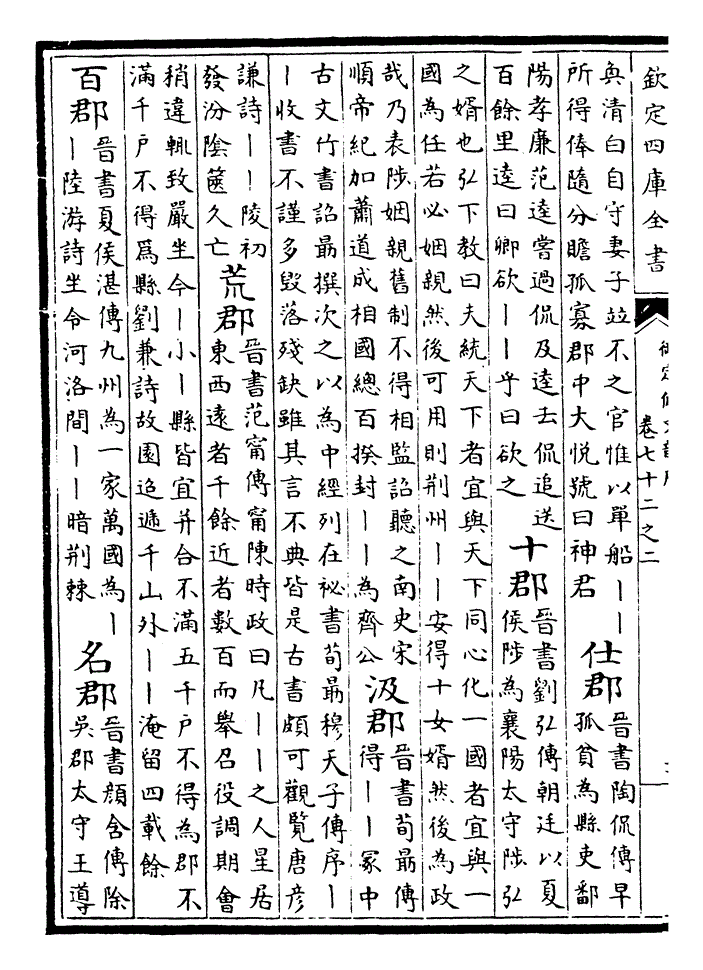 欽定四庫全書
御定佩文韻府
卷七十二之二
奐清白自守妻子竝不之官惟以單船丨丨
所得俸隨分贍孤寡郡中大悅號曰神君
仕郡
晉書陶侃傳早
孤貧為縣吏鄱
陽孝廉范逵嘗過侃及逵去侃追送
百餘里逵曰卿欲丨丨乎曰欲之
十郡
晉書劉弘傳朝廷以夏
侯陟為襄陽太守陟弘
之婿也弘下教曰夫統天下者宜與天下同心化一國者宜與一
國為任若必姻親然後可用則荆州丨丨安得十女婿然後為政
哉乃表陟姻親舊制不得相監詔聽之南史宋
順帝紀加蕭道成相國總百揆封丨丨為齊公
汲郡
晉書荀勗傳
得丨丨冢中
古文竹書詔勗撰次之以為中經列在祕書荀勗穆天子傳序丨
丨收書不謹多毀落殘缺雖其言不典皆是古書頗可觀覽唐彦
謙詩丨丨陵初
發汾陰篋久亡
荒郡
晉書范甯傳甯陳時政曰凡丨丨之人星居
東西遠者千餘近者數百而舉召役調期會
稍違輒致嚴坐今丨小丨縣皆宜并合不滿五千戶不得為郡不
滿千戶不得爲縣劉兼詩故園迢遞千山外丨丨淹留四載餘
百郡
晉書夏侯湛傳九州為一家萬國為丨
丨陸游詩坐令河洛間丨丨暗荆棘
名郡
晉書顔含傳除
吳郡太守王導